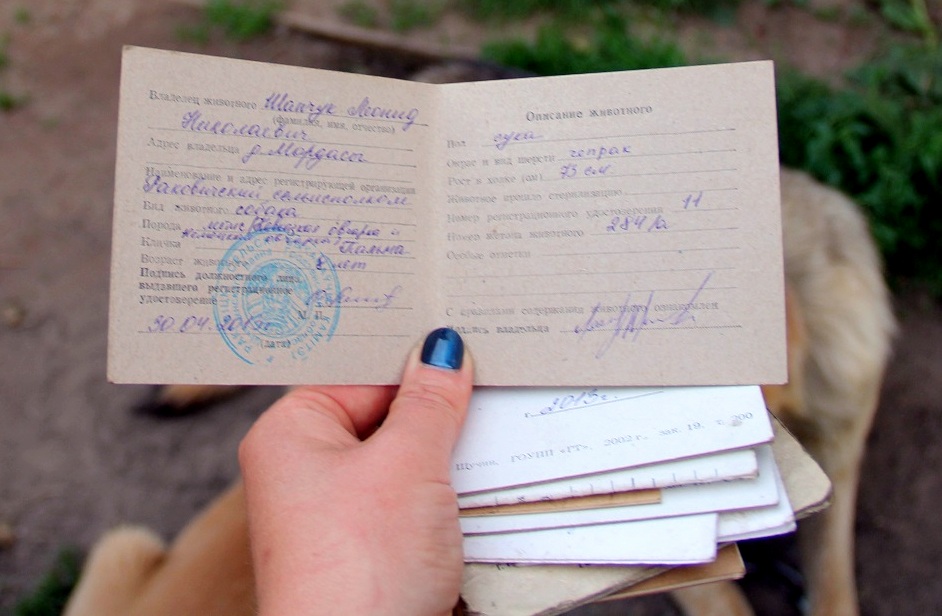 Владелец животного Шапчук Леонид
(фамилия, имя, отчество)
Николаевич
Адрес владельца д. Мордасы
Наименование и адрес регистрирующей организации
Раковичский сельисполком
Вид животного собака
Порода метис
Кличка Пальма
Возраст животного лет
Подпись должностного лица,
выдавшего регистрационное
удостоверение
М. П.
30.04.
(дата)
Описание животного
Пол сука
Окрас и вид шерсти чепрак
Рост в холке (см) 75 см
Животное прошло стерилизацию
Номер регистрационного удостоверения 11
Номер жетона животного
Особые отметки
С правилами содержания животного ознакомлен
Подпись владельца
2013 г.
Щучин, ГОУПП «ГТ», 2002 г., зак. 19, т. 200